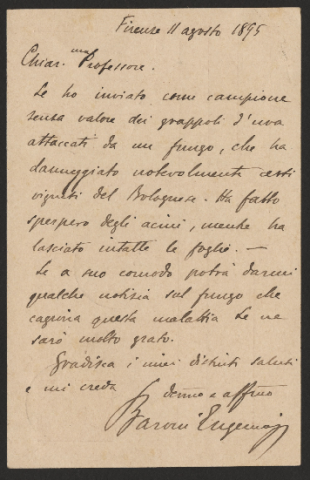 Firenze 11 agosto 1895
Chiar.mo Professore.
Le ho inviato come campione
senza valore dei grappoli d'uva
attaccati da un fungo, che ha
danneggiato notevolmente certi
vigneti del Bolognese. Ha fatto
sperpero degli acini, mentre ha
lasciato intatte le foglie. —
Se a suo comodo potrà darmi
qualche notizia sul fungo che
cagiona questa malattia Le ne
sarò molto grato.
Gradisca i miei distinti saluti
e mi creda
devmo e affmo
Baroni Eugenio